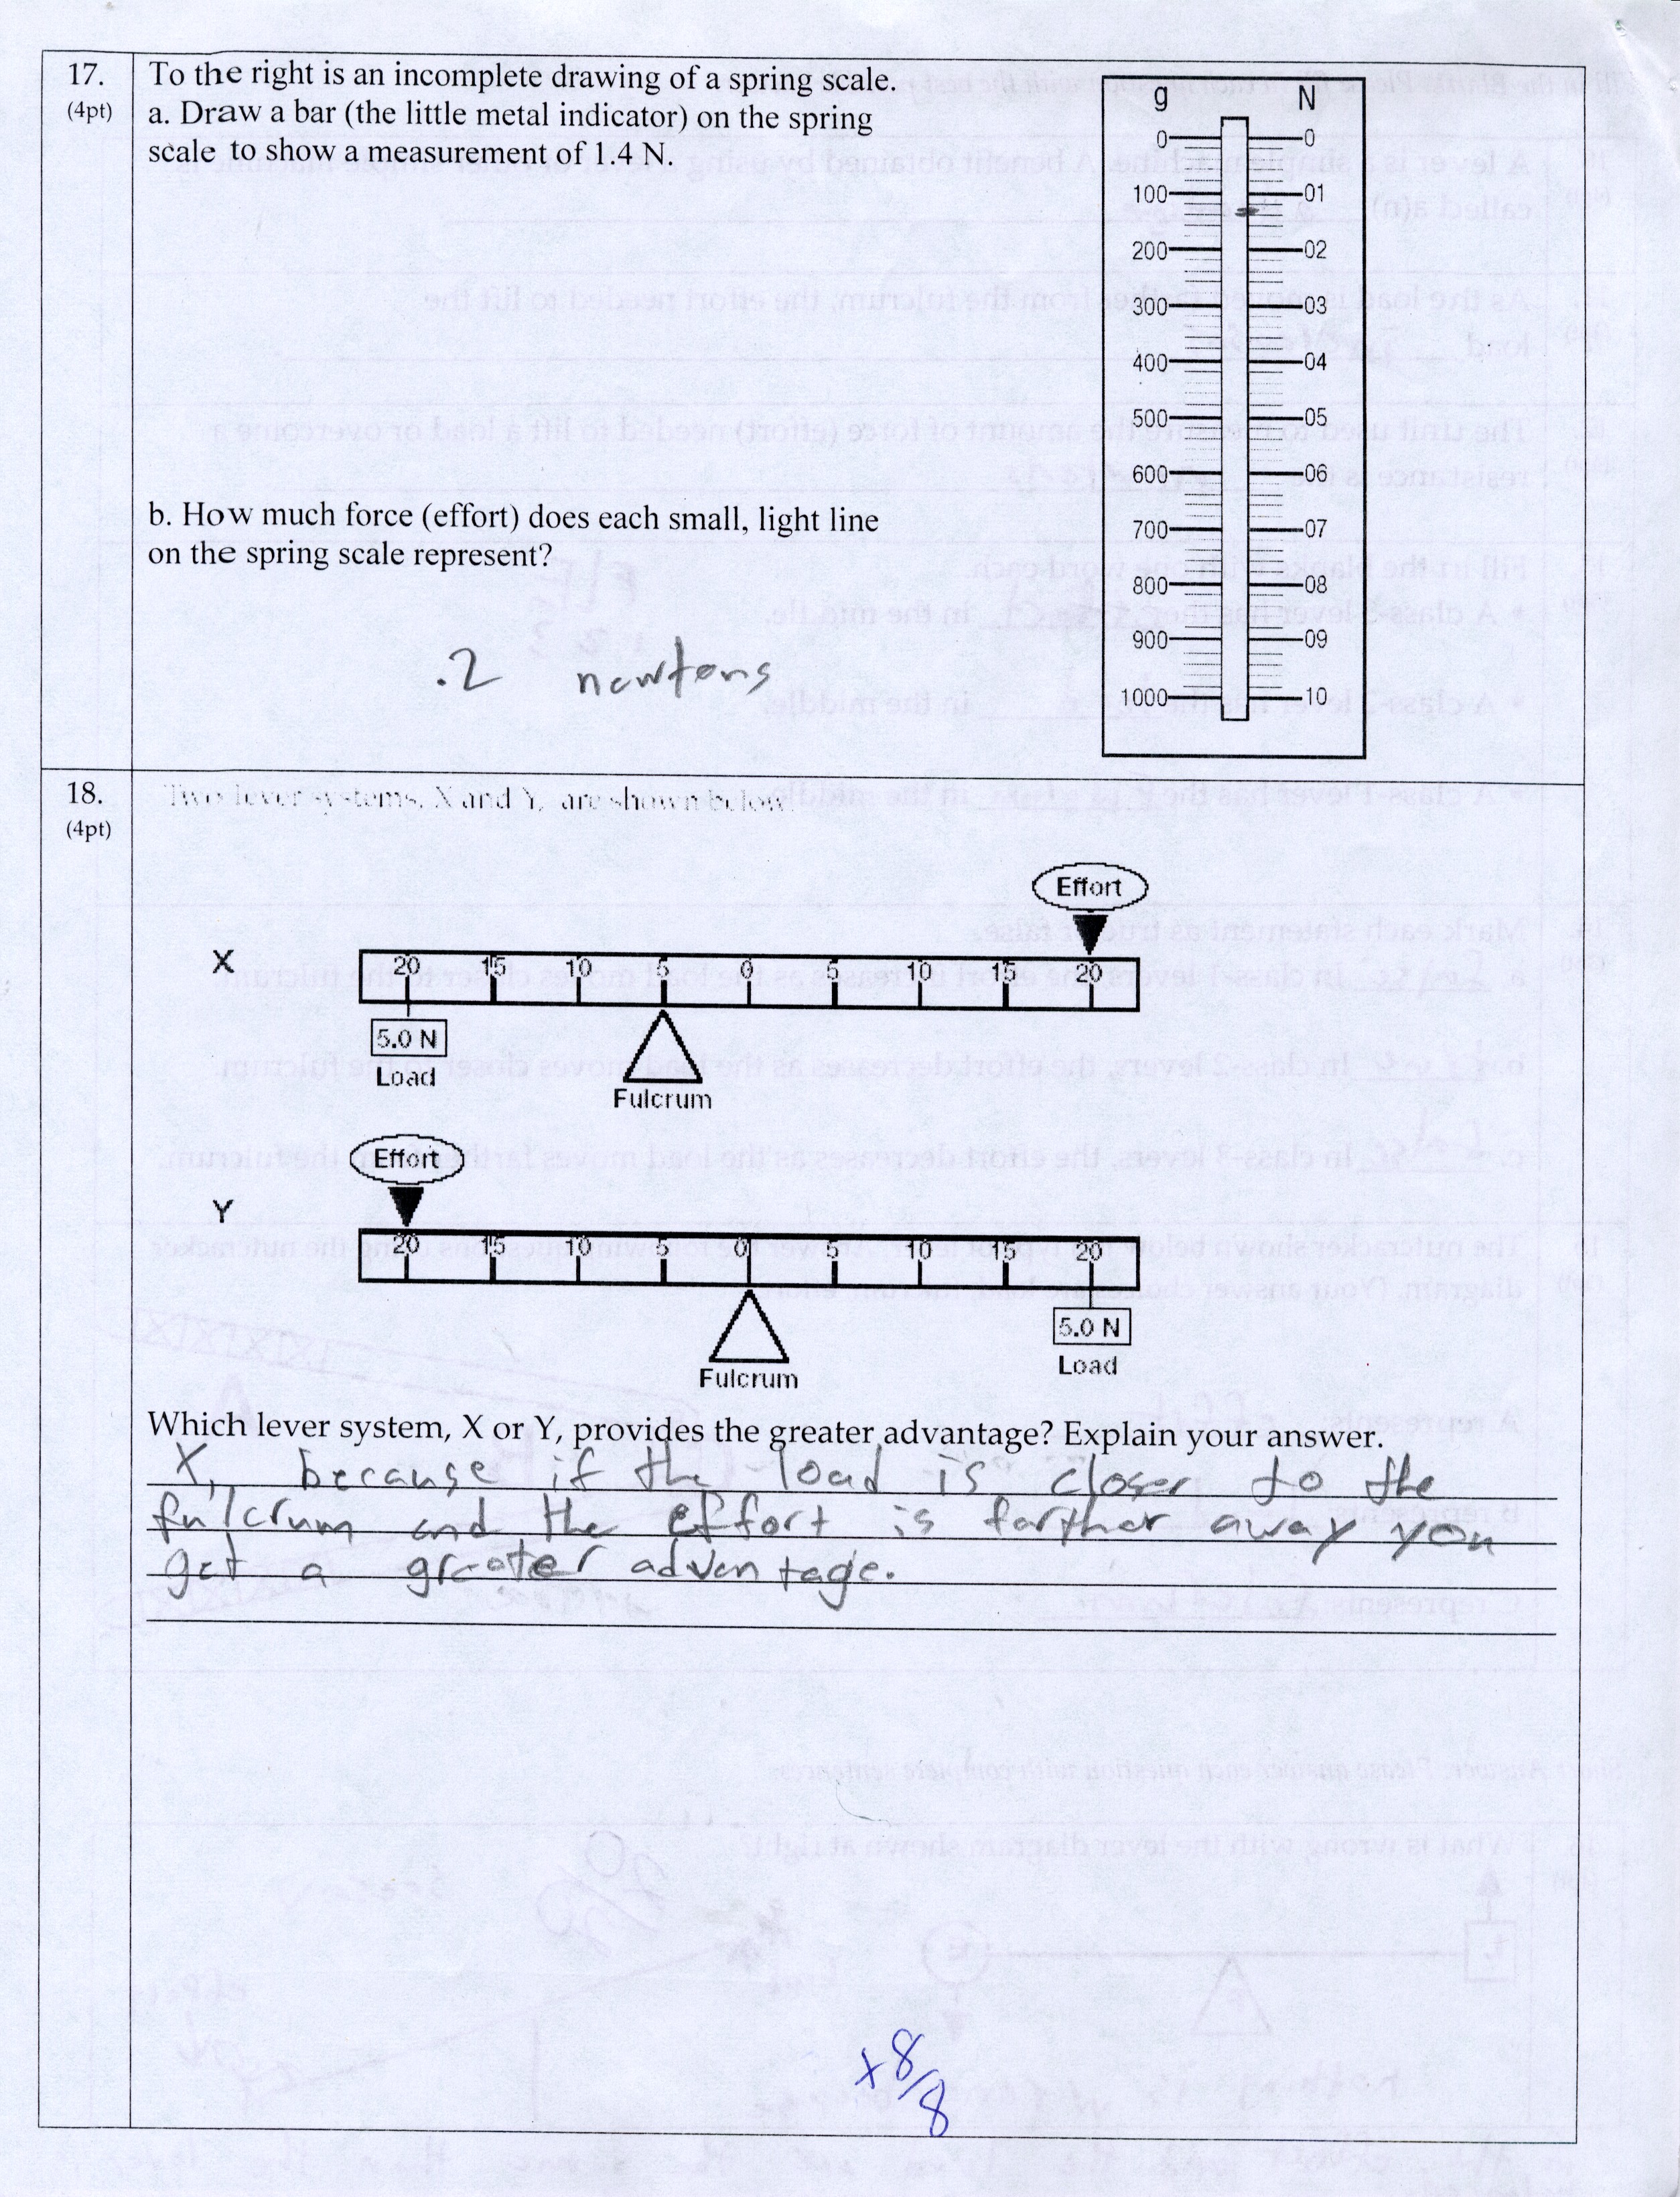 17.
(4pt)
To the right is an incomplete drawing of a spring scale.
a. Draw a bar (the little metal indicator) on the spring
scale to show a measurement of 1.4 N.
b. How much force (effort) does each small, light line
on the spring scale represent?
.2 newtons
g N
0 0
100 01
200 02
300 03
400 04
500 05
600 06
700 07
800 08
900 09
1000 10
18.
(4pt)
Two lever systems, X and Y, are shown below
Effort
X
20 15 10 5 0 5 10 15 20
5.0 N
Load
Fulcrum
Effort
Y
20 15 10 5 0 5 10 15 20
5.0 N
Load
Fulcrum
Which lever system, X or Y, provides the greater advantage? Explain your answer.
X, because if the load is closer to the
fulcrum and the effort is farther away you
get a greater advantage.
+8/8